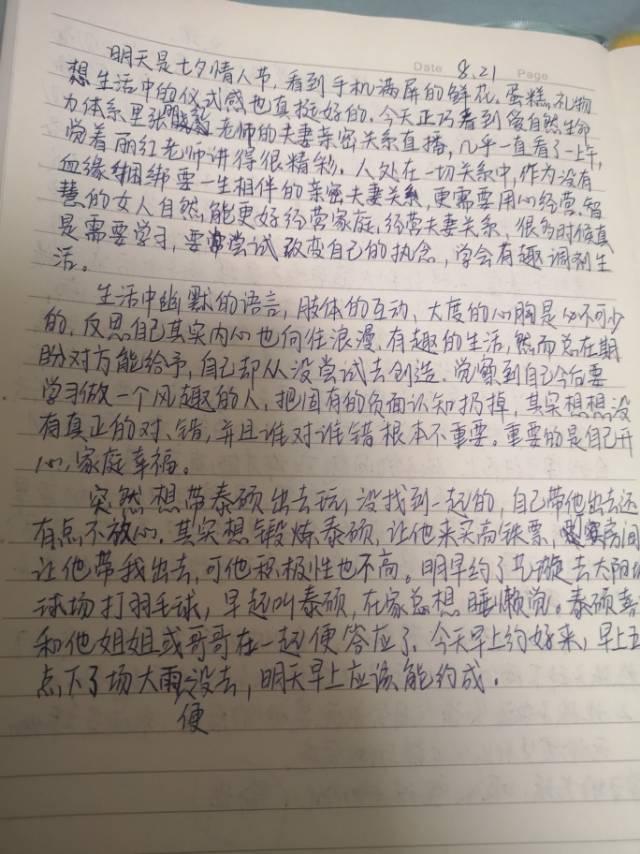 Date 8.21 Page
明天是七夕情人节,看到手机满屏的鲜花、蛋糕、礼物
想生活中的仪式感也真挺好的。今天正巧看到爱自然生命
力体系里张老师的夫妻亲密关系直播,几乎一直看了一上午,
觉着丽红老师讲得很精彩。人处在一切关系中,作为没有
血缘捆绑要一生相伴的亲密夫妻关系,更需要用心经营。智
慧的女人自然能更好经营家庭、经营夫妻关系,很多时候真
是需要学习,要常尝试改变自己的执念,学会有趣调剂生
活。
生活中幽默的语言,肢体的互动,大度的心胸是必不可少
的,反思自己其实内心也向往浪漫、有趣的生活,然而总在期
盼对方能给予,自己却从没尝试去创造。觉察到自己今后要
学习做一个风趣的人,把固有的负面认知扔掉,其实想想没
有真正的对、错,并且谁对谁错根本不重要。重要的是自己开
心,家庭幸福。
突然想带泰硕出去玩,没找到一起的,自己带他出去还
有点不放心。其实想锻炼泰硕,让他来买高铁票,房间
让他带我出去,可他积极性也不高。明早约了去太阳
球场打羽毛球,早起叫泰硕,在家总想睡懒觉。泰硕喜
和他姐姐或哥哥在一起便答应了。今天早上约好来,早上五
点下了场大雨便没去,明天早上应该能约成。